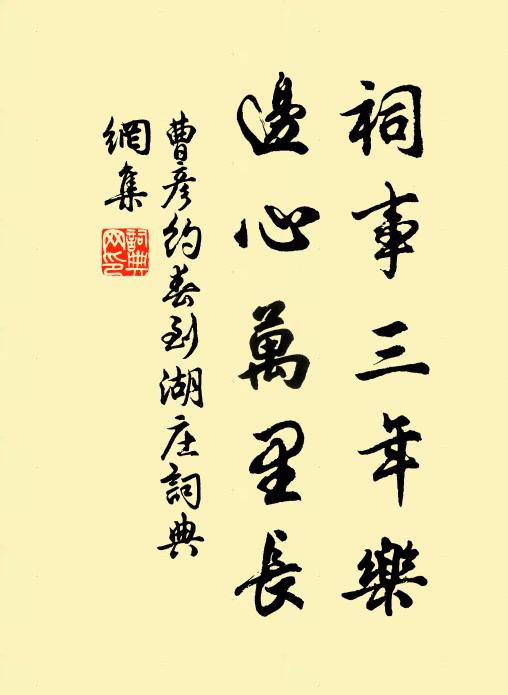 祠事三年樂
邊心萬里長
曹彥約春到湖庄詞典
網集
詞典網印